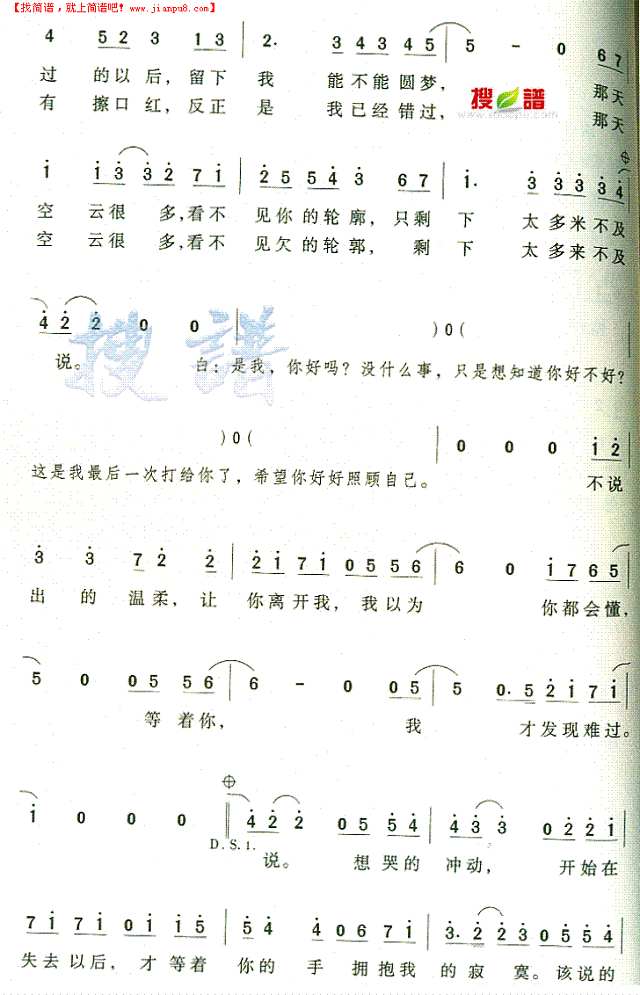 【找简谱,就上简谱吧!】www.jianpu8.com
4 52 3 13 2. 34345 5 - 0 67
过 的以后, 留下 我 能不能圆梦, 那天
有 擦口红, 反正 是 我已经错过, 那天
搜谱
i 13 32 71 2554 3 67 1. 3 3 3 34
空 云很 多,看不 见你的轮廓,只剩 下 太多米不及
空 云很 多,看不 见欠的轮郭, 剩 下 太多来不及
42 2 0 0 )0(
搜谱
说。 白:是我,你好吗?没什么事,只是想知道你好不好?
)0( 0 0 0 12
这是我最后一次打给你了,希望你好好照顾自己。 不说
3 3 72 2 2171 0556 6 0 1765
出 的 温柔, 让 你离开我,我以为 你都会懂,
5 0 0556 6 - 0 05 5 0.52171
等着你, 我 才发现难过。
1 0 0 0 42 2 0554 43 3 0221
D.S.1.
说。 想哭的 冲动, 开始在
7171 01 15 54 4 0671 3.22 0554
失去以后,才等着 你的 手 拥抱我 的寂 寞。该说的